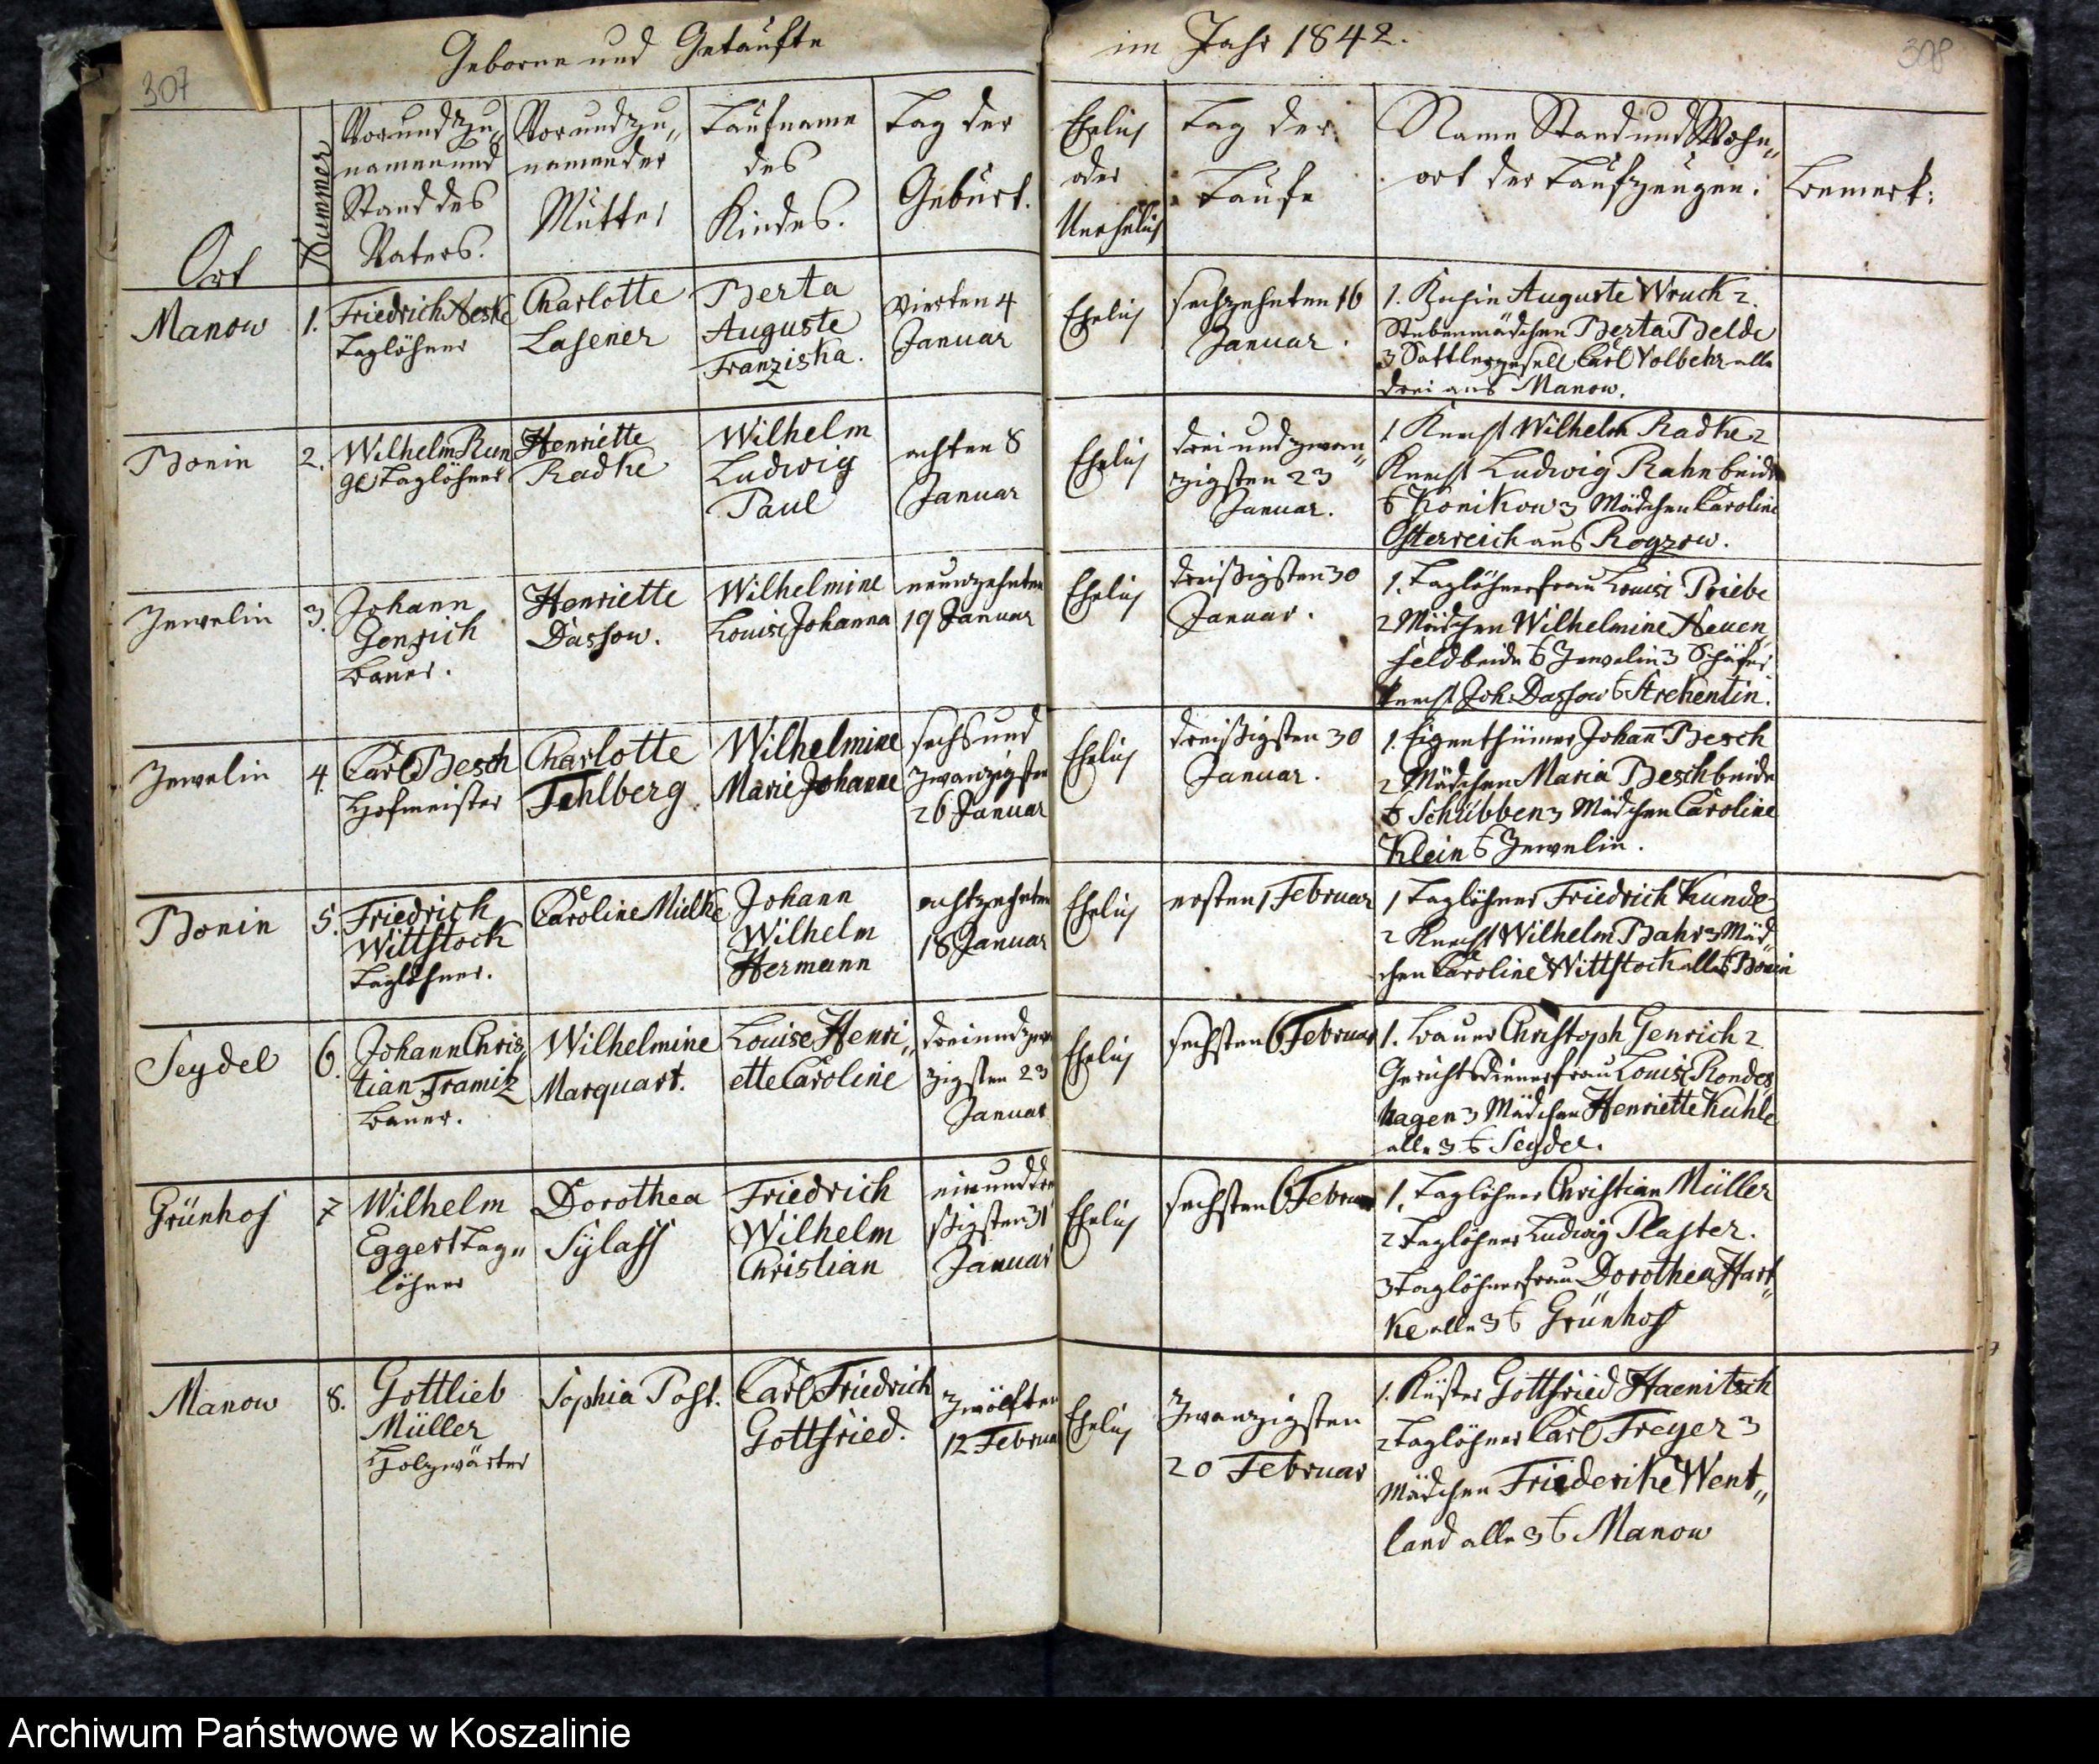 307
Geborne und Getaufte
im Jahr 1842.
308
Ort
Nummer
Vor und Zu„
namen und
Stand des
Vaters.
Vor und Zu„
namen der
Mutter
Taufname
des
Kindes.
Tag der
Geburt.
Ehelich
oder
Unehelich
Tag der
Taufe
Name Stand und Wohn„
ort der Taufzeugen.
Bemerk:
Manow
1.
Friedrich Aeske
Taglöhner
Charlotte
Lasener
Berta
Auguste
Franziska.
vierten 4
Januar
Ehelich
sechzehnten 16
Januar.
1. Auguste Wruck 2.
Stubenmädchen Berta Belde
3 Sattlergesell Carl Volbehr alle
drei aus Manow.
Bonin
2.
Wilhelm Run
ge Taglöhner
Henriette
Radke
Wilhelm
Ludwig
Paul
achten 8
Januar
Ehelich
drei und zwan„
zigsten 23
Januar.
1 Knecht Wilhelm Radke 2
Knecht Ludwig Rahn beide
Konikow 3 Mädchen Caroline
Osterreich aus Rogzow.
Jewelin
3.
Johann
Genrich
Bauer.
Henriette
Dassow.
Wilhelmine
Louise Johanna
neunzehnten
19 Januar
Ehelich
dreißigsten 30
Januar.
1. Taglöhnerfrau Louise Priebe
2 Mädchen Wilhelmine Neuen„
feld beide Jewelin 3 Schäfer
knecht Joh. Dassow Strehentin.
Jewelin
4.
Carl Besch
Hofmeister
Charlotte
Fehlberg.
Wilhelmine
Marie Johanne
sechs und
zwanzigsten
26 Januar
Ehelich
dreißigsten 30
Januar.
1. Eigenthümer Johan Besch
2 Mädchen Maria Besch beide
Schübben 3 Mädchen Caroline
Klein Jewelin.
Bonin
5.
Friedrich
Wittstock
Taglöhner.
Caroline Mielke
Johann
Wilhelm
Hermann
achtzehnten
18 Januar
Ehelich
ersten 1 Februar
1 Taglöhner Friedrich Kunde
2 Knecht Wilhelm Bahr 3 Mäd„
chen Caroline Wittstock alle Bonin
Seydel
6.
Johann Chris„
tian Tramitz
Bauer.
Wilhelmine
Marquart.
Louise Henri„
ette Caroline
drei und zwan
zigsten 23
Januar
Ehelich
sechsten 6 Februar
1. Bauer Christoph Genrich 2
Gerichtsdienerfrau Louise Rondes„
hagen 3 Mädchen Henriette Kuhle
alle 3 Seydel.
Grünhof
7
Wilhelm
Eggert Tag„
löhner
Dorothea
Sylass
Friedrich
Wilhelm
Christian
ein und drei
ßigsten 31
Januar
Ehelich
sechsten 6 Februar
1. Taglöhner Christian Müller
2 Taglöhner Ludwig Plaster.
3 Taglöhnerfrau Dorothea Hart„
ke alle 3 Grünhof
Manow
8.
Gottlieb
Müller
Holzwärter
Sophia Post.
Carl Friedrich
Gottfried.
zwölften
12 Februar
Ehelich
Zwanzigsten
20 Februar
1. Küster Gottfried Haenitsch
2 Taglöhner Carl Freyer 3
Mädchen Friederike Went„
land alle 3 Manow
Archiwum Państwowe w Koszalinie